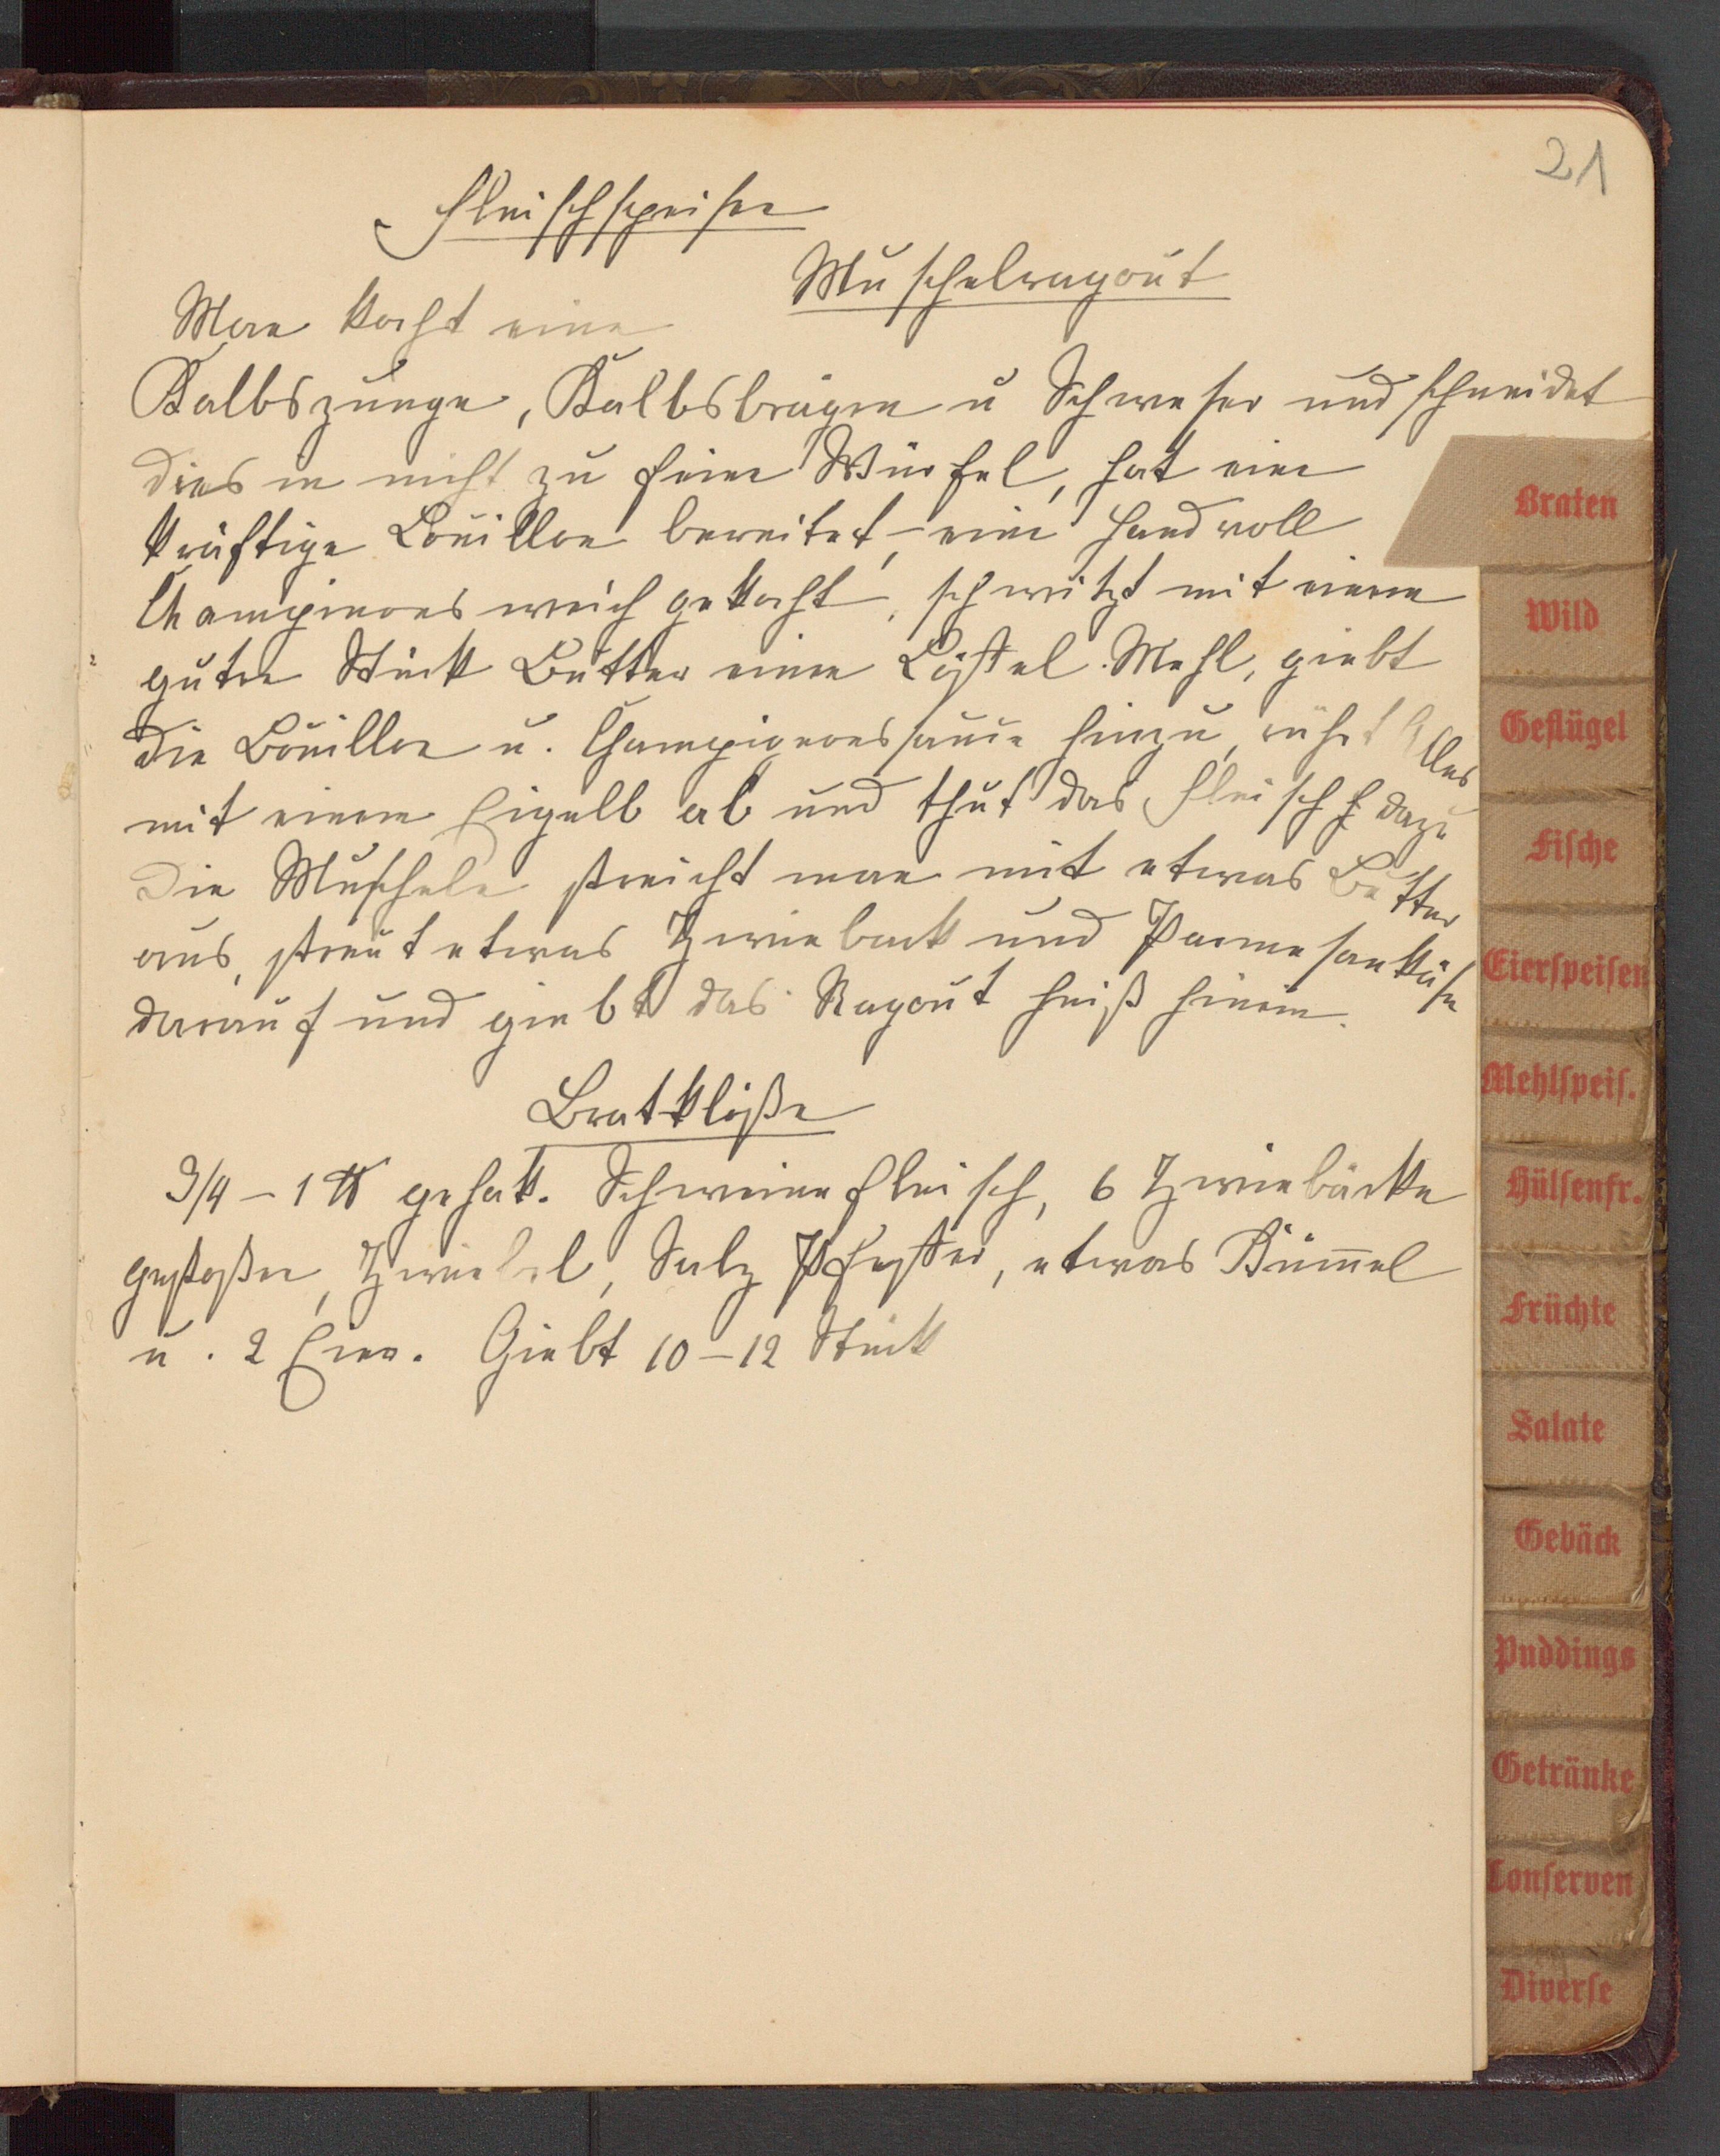 21
Fleischspeisen
Muschelragout
Man kocht eine
Kalbszunge, Kalbsbrägen u Schweser und schneidet
dies in nicht zu feine Würfel, hat eine
kräftige Bouillon bereitet, eine Handvoll
Champinons weich gekocht, schwitzt mit einem
guten Stück Butter einen Löffel Mehl, giebt
die Bouillon u. Champignonssauce hinzu, rührt Alles
mit einem Eigelb ab und thut das Fleisch dazu
Die Muscheln streicht man mit etwas Butter
aus, streut etwas Zwieback und Parmesankäse
darauf und giebt das Ragout heiß hinein.
Bratklöße
3/4 – 1 ℔ gehak. Schweinefleisch, 6 Zwiebäcke
gestoßen, Zwiebel, Salz Pfeffer, etwas Kümmel
u. 2 Eier. Giebt 10 – 12 Stück
Braten
Wild
Geflügel
Fische
Eierspeisen
Mehlspeis.
Hülsenfr.
Früchte
Salate
Gebäck
Puddings
Getränke
Conserven
Diverse